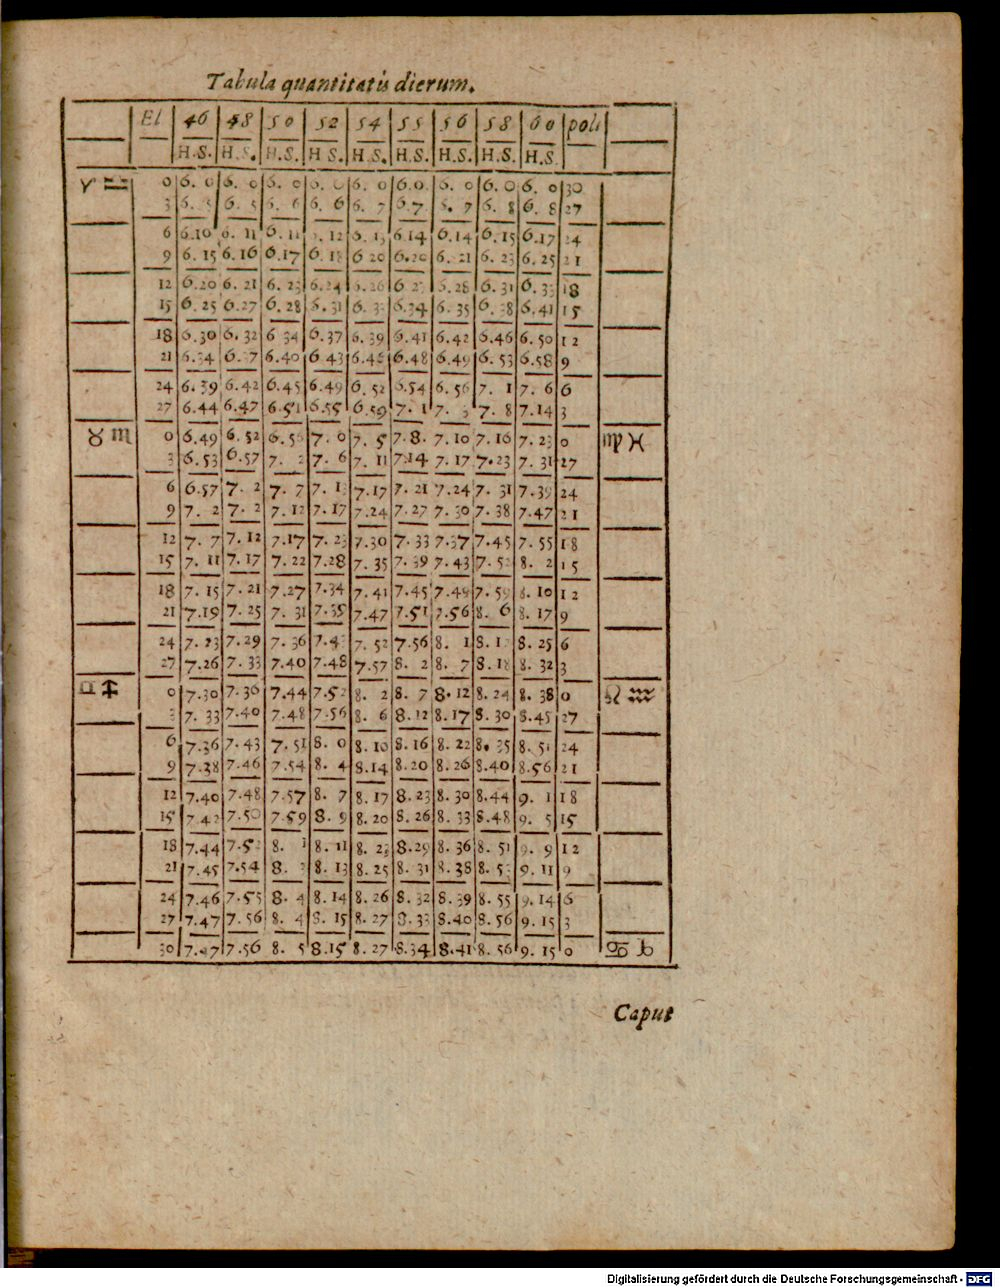 Tabula quantitatis dierum.
El 46 48 50 52 54 55 56 58 60 poli
H.S. H.S. H.S. H S. H.S. H.S. H.S. H.S. H.S.
♈ ♎ 0 6. 0 6. 0 6. 0 6. 0 6. 0 6.0. 6. 0 6. 0 6. 0 30
3 6. 5 6. 5 6. 6 6. 6 6. 7 6.7. 6. 7 6. 8 6. 8 27
6 6.10 6. 11 6. 11 12 6. 13 6.14 6.14 6.15 6.17 24
9 6. 15 6.16 6.17 6. 18 6 20 6.20 6. 21 6. 23 6.25 21
12 6.20 6. 21 6. 23 6.24 6.26 6. 27 6.28 6. 31 6. 33 18
15 6. 25 6.27 6. 28 6. 31 6. 33 6.34 6. 35 6. 38 6.41 15
18 6.30 6. 32 6 34 6.37 6.39 6.41 6.42 6.46 6. 50 12
21 6.34 6. 37 6.40 6.43 6.46 6.48 6.49 6. 53 6.58 9
24 6. 39 6.42 6.45 6.49 6. 52 6.54 6.56 7. 1 7. 6 6
27 6.44 6.47 6.51 6.55 6.59 7. 1 7. 3 7. 8 7.14 3
♉ ♏ 0 6.49 6. 52 6.56 7. 0 7. 5 7.8. 7. 10 7. 16 7. 23 0 ♍ ♓
3 6.53 6.57 7. 2 7. 6 7. 11 7.14 7. 17 7.23 7. 31 27
6 6.57 7. 2 7. 7 7. 1 7.17 7. 21 7.24 7. 31 7.39 24
9 7. 2 7. 2 7. 12 7.17 7.24 7.27 7. 30 7. 38 7.47 21
12 7. 7 7. 12 7.17 7. 23 7.30 7. 33 7.37 7.45 7. 55 18
15 7. 11 7. 17 7. 22 7.28 7. 35 7. 39 7. 43 7. 52 8. 2 15
18 7. 15 7. 21 7.27 7.34 7. 41 7.45 7.49 7. 59 8. 10 12
21 7.19 7. 25 7. 31 7.39 7.47 7.51 7.56 8. 6 8. 17 9
24 7. 23 7.29 7. 36 7.43 7. 52 7.56 8. 1 8.12 8. 25 6
27 7.26 7. 33 7.40 7.48 7.57 8. 2 8. 7 8.18 8. 32 3
♊ ♐ 0 7.30 7.36 7.44 7.52 8. 2 8. 7 8. 12 8. 24 8. 38 0 ♌ ♒
3 7. 33 7.40 7.48 7.56 8. 6 8.12 8.17 8. 30 8.45 27
6 7.36 7. 43 7. 51 8. 0 8. 10 8. 16 8. 22 8. 35 8. 51 24
9 7.38 7.46 7.54 8. 4 8.14 8.20 8.26 8.40 8.56 21
12 7.40 7.48 7.57 8. 7 8. 17 8.23 8. 30 8.44 9. 1 18
15 7.42 7.50 7.59 8. 9 8. 20 8. 26 8. 33 8.48 9. 5 15
18 7.44 7.52 8. 1 8. 11 8. 23 8.29 8. 36 8. 51 9. 9 12
21 7.45 7.54 8. 3 8. 13 8. 25 8. 31 8.38 8. 53 9. 11 9
24 7.46 7.55 8. 4 8. 14 8. 26 8. 32 8.39 8. 55 9.14 6
27 7.47 7. 56 8. 4 8. 15 8. 27 8.33 8.40 8. 56 9. 15 3
30 7.47 7.56 8. 5 8.15 8. 27 8.34 8.41 8. 56 9. 15 0 ♋ ♑
Caput
Digitalisierung gefördert durch die Deutsche Forschungsgemeinschaft - DFG